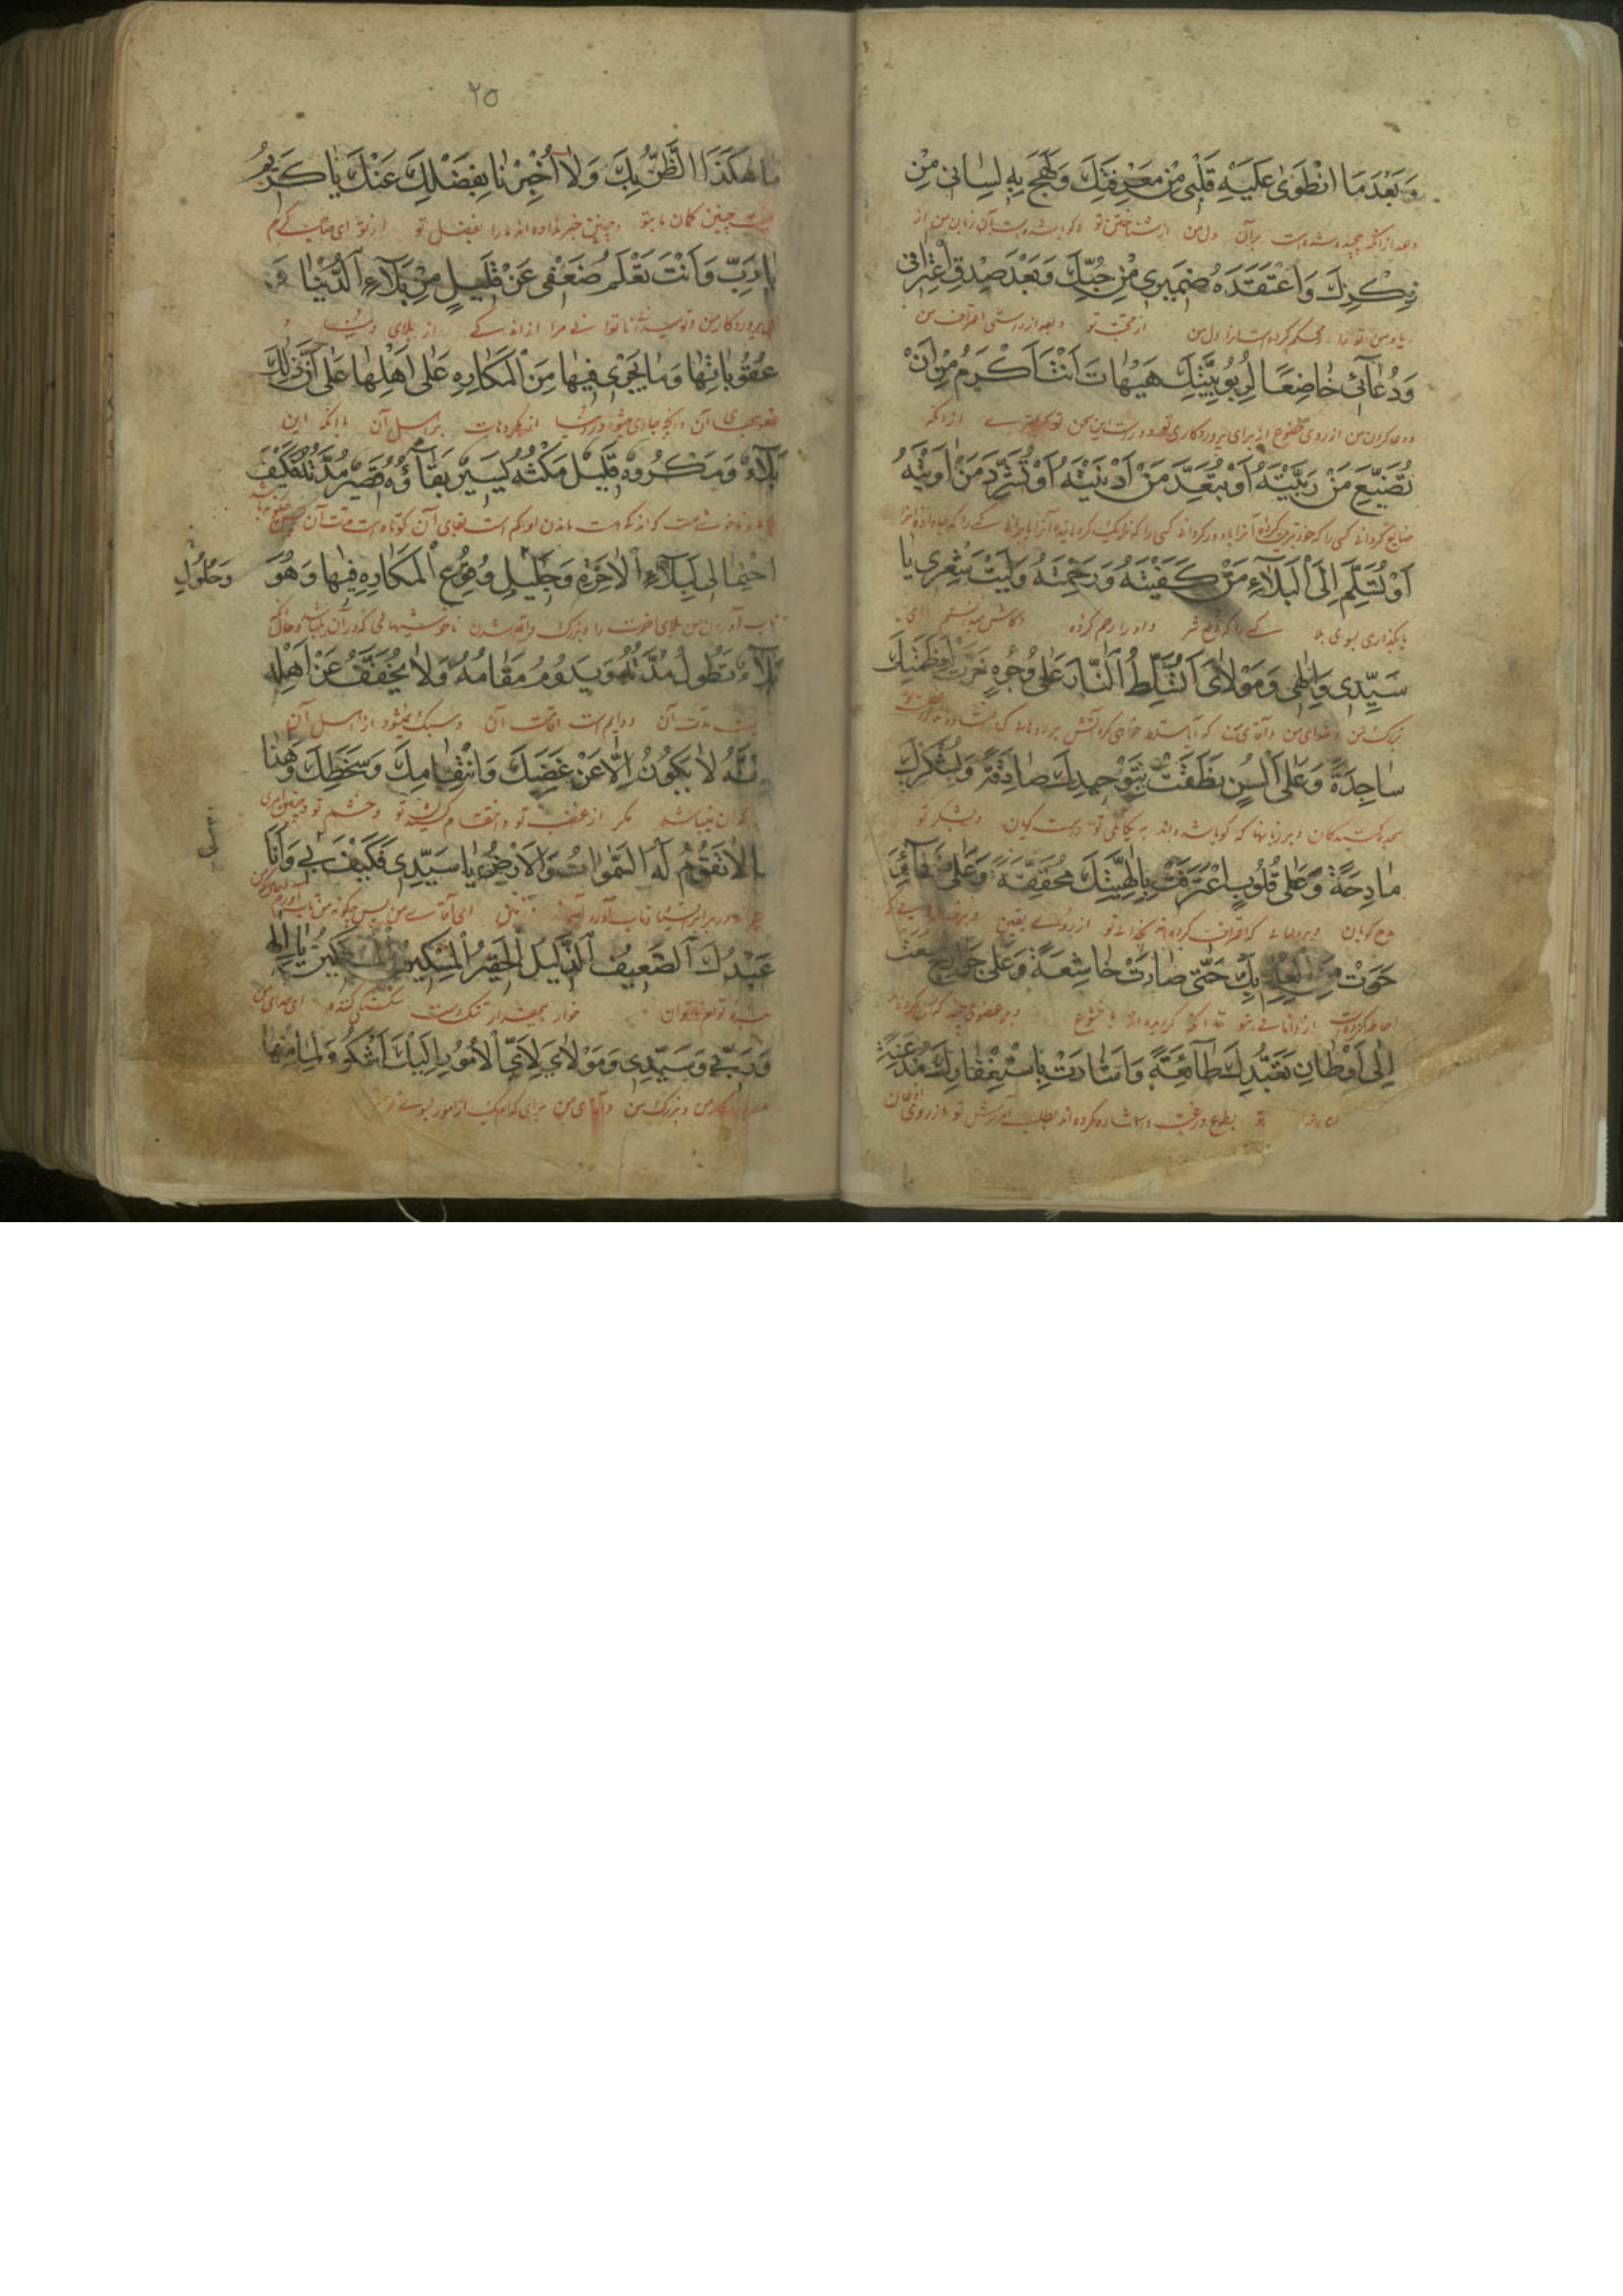 وَبَعْدَمَا انْطَوٰى عَلَيْهِ قَلْبي مِنْ مَعْرِفَتِكَ وَلَهِجَ بِهِ لِسٰاني مِنْ
وبعد از آنکه پیچیده شده است برآن دل من از شناختن تو وگویا شده است بآن زبان من از
ذِكْرِكَ وَاعْتَقَدَهُ ضَميري مِنْ حُبِّكَ وَبَعْدَ صِدْقِ اعْتِرافي
محکم کرده است دل من از محبت تو وبعد از راستی اعتراف من
وَدُعٰآئي خٰاضِعًا لِرُبُوبِيَّتِكَ هَيْهٰاتَ اَنْتَ اَكْرَمُ مِنْ اَنْ
ودعا کردن من از روی خضوع از برای پروردگاری تو دور است این سخن تو کریمتری از آنکه
تُضَيِّعَ مَنْ رَبَّيْتَهُ اَوْ تُبَعِّدَ مَنْ اَدْنَيْتَهُ اَوْ تُشَرِّدَ مَنْ اٰوَيْتَهُ
ضایع گردانی کسی را که خود تربیت کرده آنرا یا دور گردانی کسی را که نزدیک گردانیده آنرا یا برانی کسی را که
اَوْ تُسَلِّمَ اِلَى الْبَلٰآءِ مَنْ كَفَيْتَهُ وَرَحِمْتَهُ وَلَيْتَ شِعْري يٰا
یا بگذاری بسوی بلا کسی را که دفع شر واو را رحم کرده وکاش میدانستم ای
سَيِّدي وَاِلٰهي وَمَوْلٰايَ اَتُسَلِّطُ النّٰارَ عَلٰى وُجُوهٍ خَرَّتْ لِعَظَمَتِكَ
بزرگ من وخدای من وآقای من که آیا مسلط خواهی کرد آتش بر روهائی که
سٰاجِدَةً وَعَلٰى اَلْسُنٍ نَطَقَتْ بِتَوْحيدِكَ صٰادِقَةً وَبِشُكْرِكَ
سجده کنندگان وبر زبانها که گویا شده اند به یگانگی تو راست گویان وبشکر تو
مٰادِحَةً وَعَلٰى قُلُوبٍ اعْتَرَفَتْ بِاِلٰهِيَّتِكَ مُحَقِّقَةً وَعَلٰى ضَمٰآئِرَ
مدح گویان وبر دلهائی که اعتراف کرده اند بخدائی تو از روی یقین وبر
حَوَتْ مِنَ الْعِلْمِ بِكَ حَتّٰى صٰارَتْ خٰاشِعَةً وَعَلٰى جَوٰارِحَ سَعَتْ
احاطه کرده است از دانائی بتو تا آنکه گردیده اند با خشوع وبر عضوی چند که
اِلٰى اَوْطٰانِ تَعَبُّدِكَ طٰآئِعَةً وَاَشٰارَتْ بِاسْتِغْفٰارِكَ مُذْعِنَةً
تو بطوع ورغبت واشاره کرده اند بطلب آمرزش تو از روی اذعان
۲۵
مٰا هٰكَذَا الظَّنُّ بِكَ وَلٰا اُخْبِرْنٰا بِفَضْلِكَ عَنْكَ يٰا كَريمُ
نیست چنین گمان ما بتو وچنین خبر نداده اند ما را بفضل تو از تو ای صاحب کرم
يٰا رَبِّ وَاَنْتَ تَعْلَمُ ضَعْفي عَنْ قَليلٍ مِنْ بَلٰآءِ الدُّنْيٰا وَ
ای پروردگار من وتو میدانی ناتوانی مرا از اندکی از بلای دنیا و
عُقُوبٰاتِهٰا وَمٰا يَجْري فيهٰا مِنَ الْمَكٰارِهِ عَلٰى اَهْلِهٰا عَلٰى اَنَّ ذٰلِكَ
عقوبتهای آن وآنچه جاری میشود در دنیا از مکروهات بر اهل آن با آنکه این
بَلٰآءٌ وَمَكْرُوهٌ قَليلٌ مَكْثُهُ يَسيرٌ بَقٰآؤُهُ قَصيرٌ مُدَّتُهُ فَكَيْفَ
بلا وناخوشی است که اندک است ماندن او کم است بقای آن کوتاه است مدت آن پس چگونه باشد
احْتِمٰالي لِبَلٰآءِ الْاٰخِرَةِ وَجَليلِ وُقُوعِ الْمَكٰارِهِ فيهٰا وَهُوَ
وَحُلُولِ
تاب آوردن من بلای آخرت را وبزرگ واقع شدن ناخوشیهائی که در آن میباشد وحال آنکه
بَلٰآءٌ تَطُولُ مُدَّتُهُ وَيَدُومُ مَقٰامُهُ وَلٰا يُخَفَّفُ عَنْ اَهْلِهِ
مدت آن ودایم است اقامت آن وسبک نمیشود از اهل آن
لِاَنَّهُ لٰا يَكُونُ اِلّٰا عَنْ غَضَبِكَ وَانْتِقٰامِكَ وَسَخَطِكَ وَهٰذٰا
که آن نمیباشد مگر از غضب تو وانتقام کشیدن تو وخشم تو وچنین امری
مٰا لٰا تَقُومُ لَهُ السَّمٰوٰاتُ وَالْاَرْضُ يٰا سَيِّدي فَكَيْفَ بي وَاَنَا
تاب آورد آسمانها وزمین ای آقای من پس چگونه من تاب آورم وحال آنکه من
عَبْدُكَ الضَّعيفُ الذَّليلُ الْحَقيرُ الْمِسْكينُ الْمُسْتَكينُ يٰا اِلٰهي
بنده توام ناتوان خوار بیمقدار تنگدست شکستگی کننده ای خدای من
وَرَبّي وَسَيِّدي وَمَوْلٰايَ لِاَيِّ الْاُمُورِ اِلَيْكَ اَشْكُو وَلِمٰا مِنْهٰا
وپروردگار من وبزرگ من وآقای من برای کدام یک از امور بسوی تو